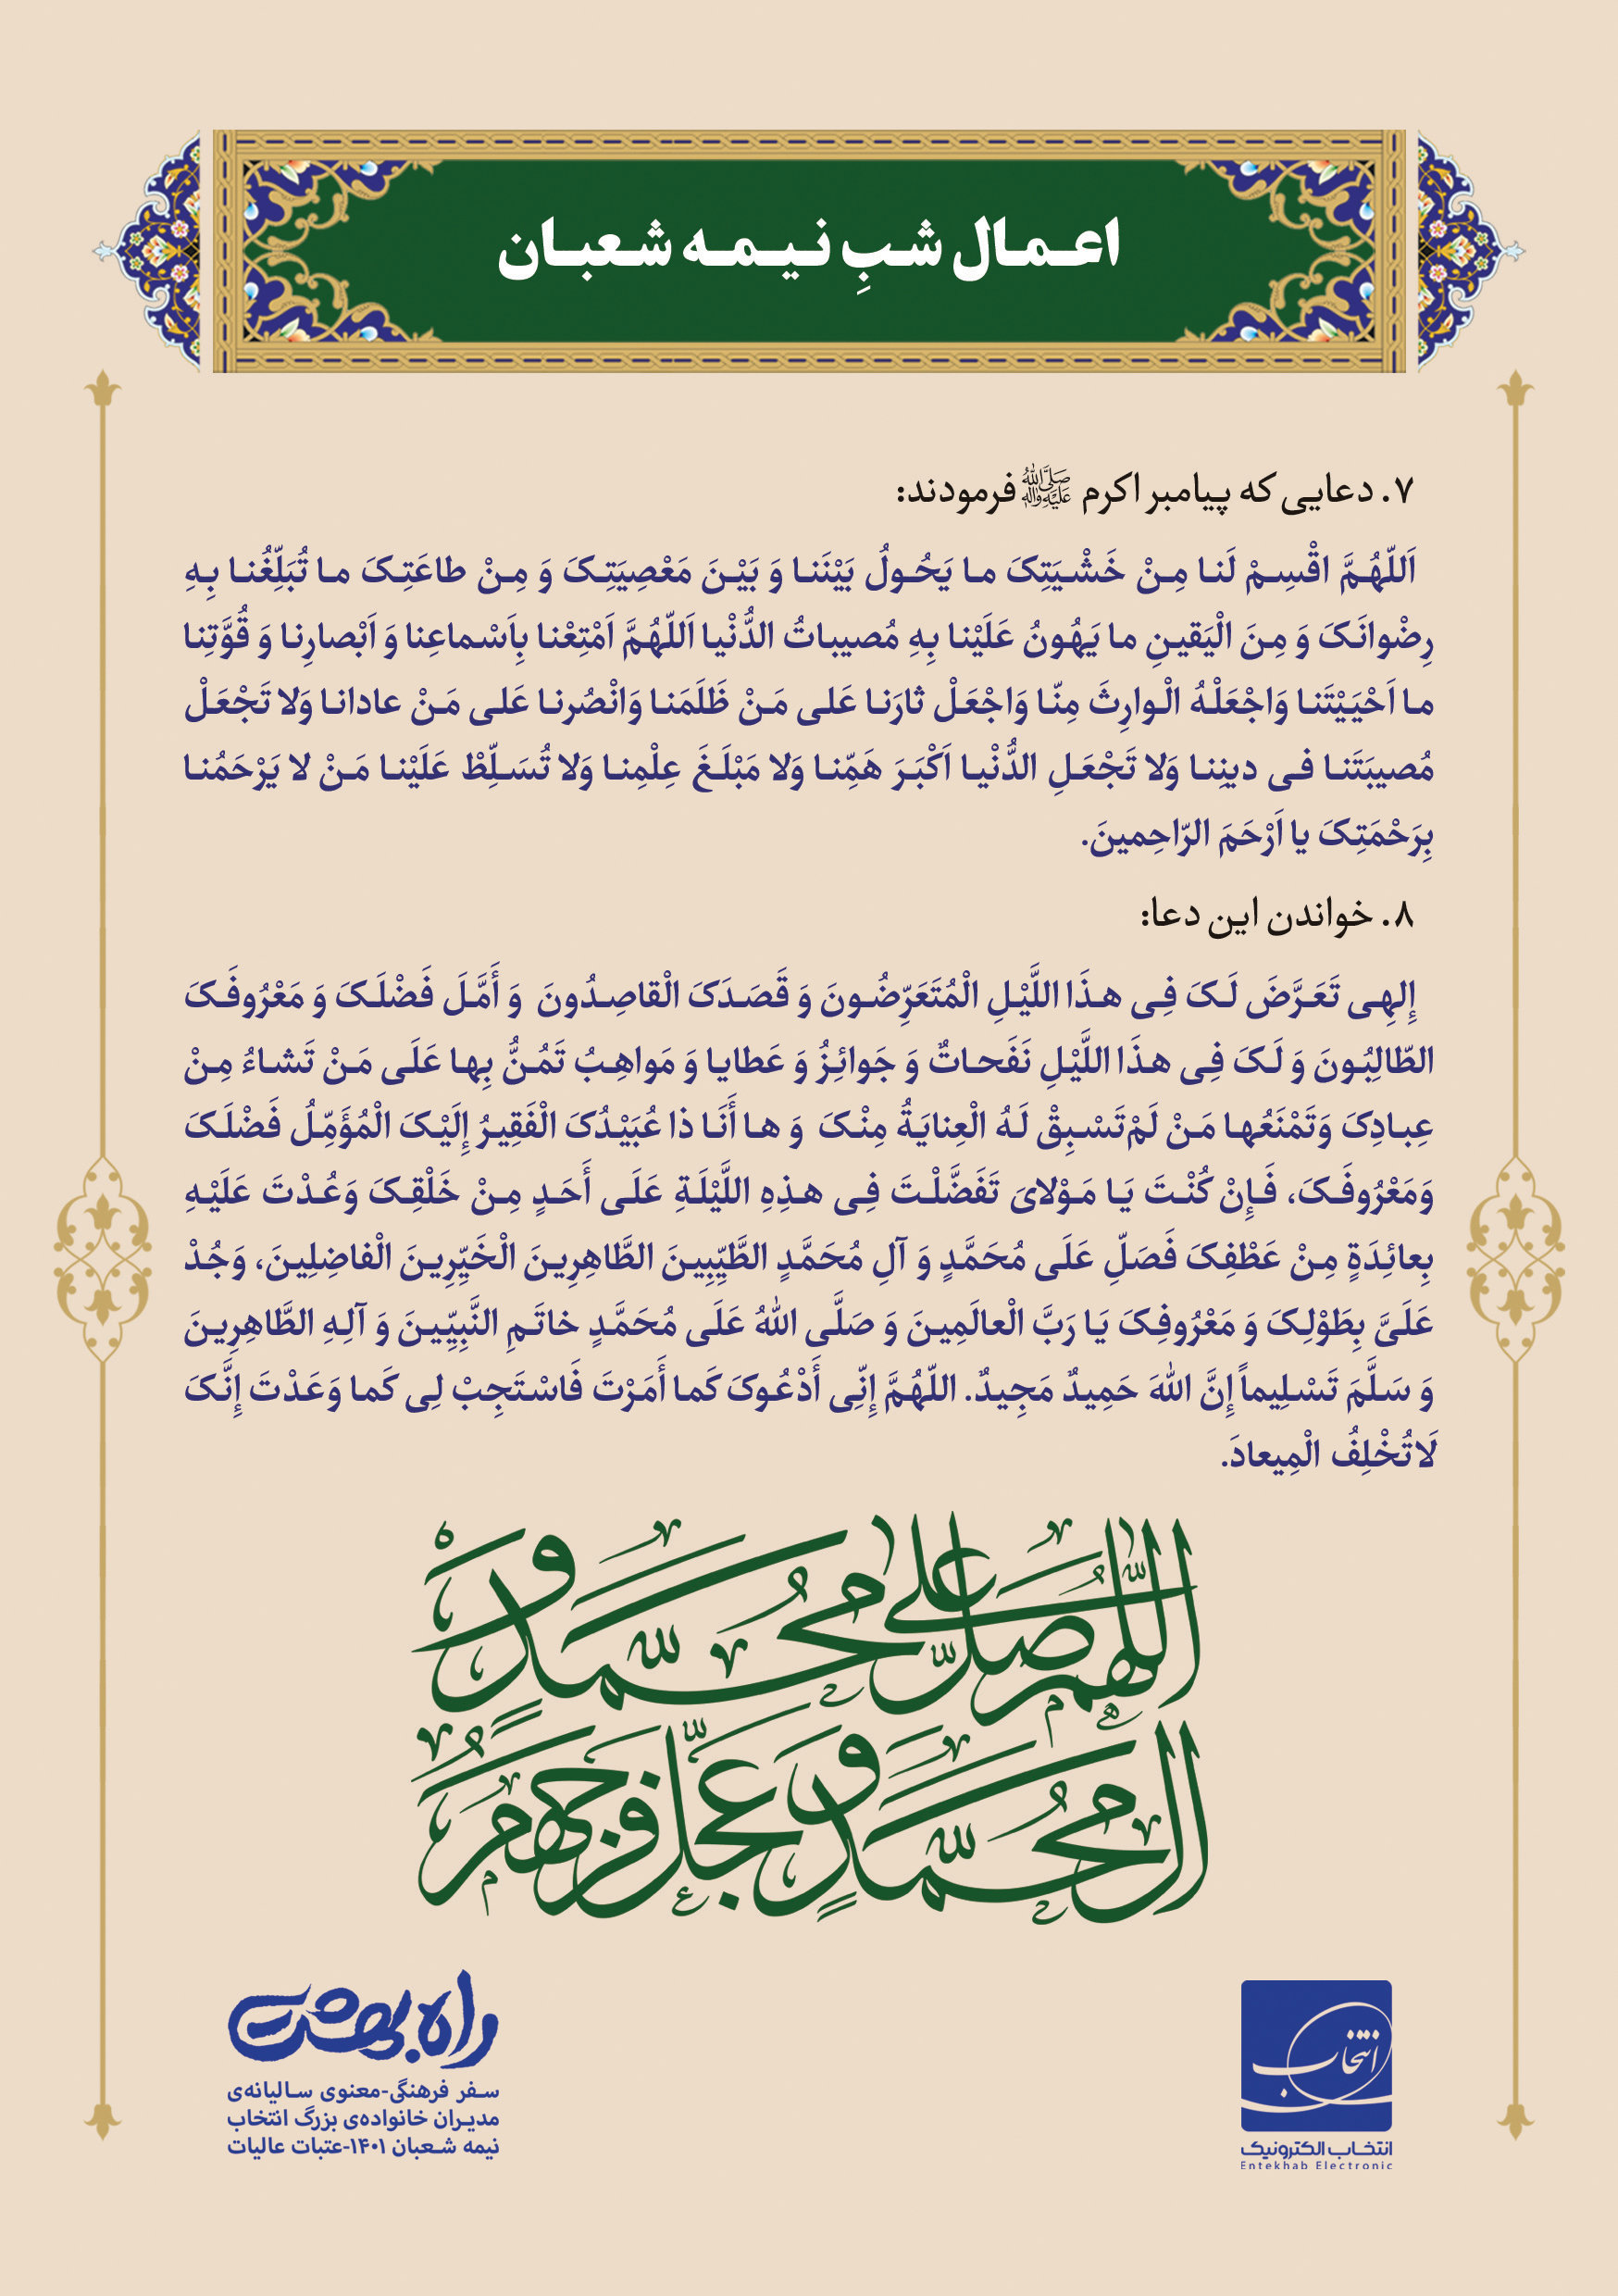 اعمال شبِ نیمه شعبان
۷. دعایی که پیامبر اکرم ﷺ فرمودند:
اَللّهُمَّ اقْسِمْ لَنا مِنْ خَشْیَتِکَ ما یَحُولُ بَیْنَنا وَ بَیْنَ مَعْصِیَتِکَ وَ مِنْ طاعَتِکَ ما تُبَلِّغُنا بِهِ
رِضْوانَکَ وَ مِنَ الْیَقینِ ما یَهُونُ عَلَیْنا بِهِ مُصیباتُ الدُّنْیا اَللّهُمَّ اَمْتِعْنا بِاَسْماعِنا وَ اَبْصارِنا وَ قُوَّتِنا
ما اَحْیَیْتَنا وَاجْعَلْهُ الْوارِثَ مِنّا وَاجْعَلْ ثارَنا عَلی مَنْ ظَلَمَنا وَانْصُرنا عَلی مَنْ عادانا وَلا تَجْعَلْ
مُصیبَتَنا فی دینِنا وَلا تَجْعَلِ الدُّنْیا اَکْبَرَ هَمِّنا وَلا مَبْلَغَ عِلْمِنا وَلا تُسَلِّطْ عَلَیْنا مَنْ لا یَرْحَمُنا
بِرَحْمَتِکَ یا اَرْحَمَ الرّاحِمینَ.
۸. خواندن این دعا:
إِلهِی تَعَرَّضَ لَکَ فِی هذَا اللَّیْلِ الْمُتَعَرِّضُونَ وَ قَصَدَکَ الْقاصِدُونَ وَ أَمَّلَ فَضْلَکَ وَ مَعْرُوفَکَ
الطّالِبُونَ وَ لَکَ فِی هذَا اللَّیْلِ نَفَحاتٌ وَ جَوائِزُ وَ عَطایا وَ مَواهِبُ تَمُنُّ بِها عَلَی مَنْ تَشاءُ مِنْ
عِبادِکَ وَتَمْنَعُها مَنْ لَمْ تَسْبِقْ لَهُ الْعِنایَةُ مِنْکَ وَ ها أَنَا ذا عُبَیْدُکَ الْفَقِیرُ إِلَیْکَ الْمُؤَمِّلُ فَضْلَکَ
وَمَعْرُوفَکَ، فَإِنْ کُنْتَ یَا مَوْلایَ تَفَضَّلْتَ فِی هذِهِ اللَّیْلَةِ عَلَی أَحَدٍ مِنْ خَلْقِکَ وَعُدْتَ عَلَیْهِ
بِعائِدَةٍ مِنْ عَطْفِکَ فَصَلِّ عَلَی مُحَمَّدٍ وَ آلِ مُحَمَّدٍ الطَّیِّبِینَ الطَّاهِرِینَ الْخَیِّرِینَ الْفاضِلِینَ، وَجُدْ
عَلَیَّ بِطَوْلِکَ وَ مَعْرُوفِکَ یَا رَبَّ الْعالَمِینَ وَ صَلَّی اللهُ عَلَی مُحَمَّدٍ خاتَمِ النَّبِیِّینَ وَ آلِهِ الطَّاهِرِینَ
وَ سَلَّمَ تَسْلِیماً إِنَّ اللهَ حَمِیدٌ مَجِیدٌ. اللّهُمَّ إِنِّی أَدْعُوکَ کَما أَمَرْتَ فَاسْتَجِبْ لِی کَما وَعَدْتَ إِنَّکَ
لَا تُخْلِفُ الْمِیعادَ.
اللّهم صل علی محمد و
ال محمد و عجل فرجهم
راه بهشت
سفر فرهنگی-معنوی سالیانه‌ی
مدیران خانواده‌ی بزرگ انتخاب
نیمه شعبان ۱۴۰۱-عتبات عالیات
انتخاب
انتخاب الکترونیک
Entekhab Electronic